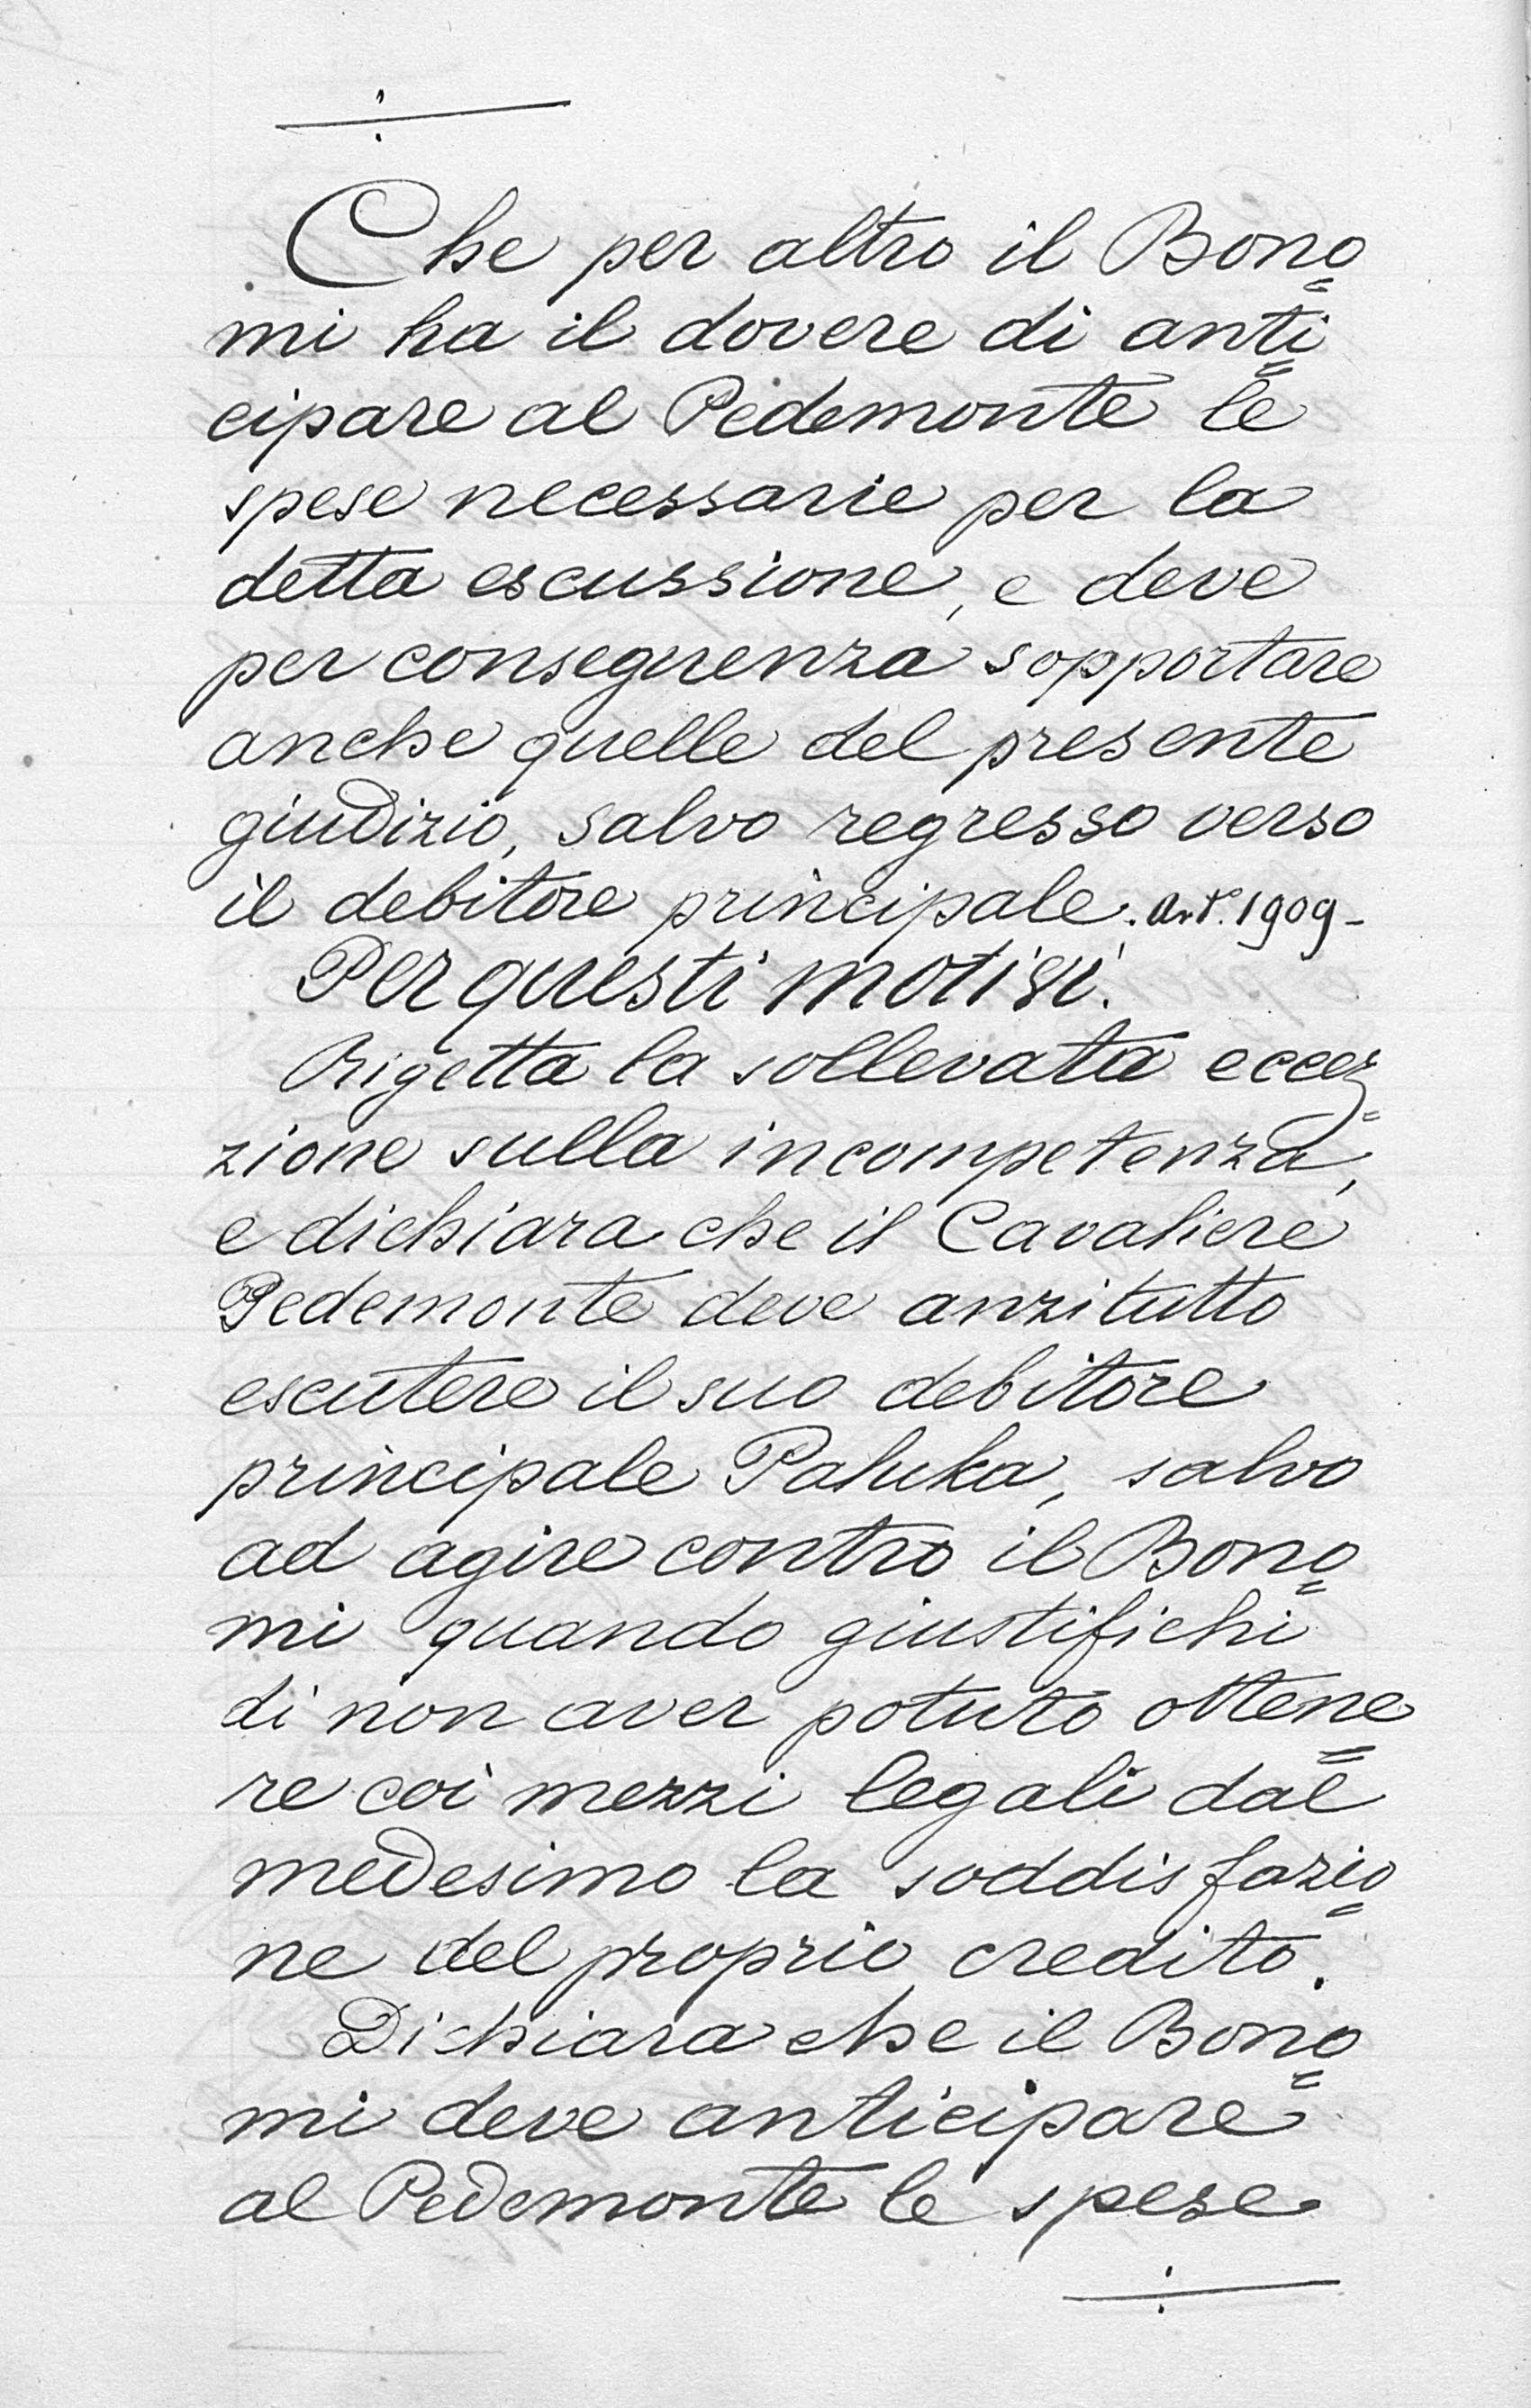 Che per altro il Bono=
mi ha il dovere di anti=
cipare al Pedemonte le
spese necessarie per la
detta escussione, e deve
per conseguenza sopportare
anche quelle del presente
giudizio, salvo regresso verso
il debitore principale. art. 1909-
Per questi motivi.
Rigetta la sollevata eccez=
zione sulla incompetenza,
e dichiara che il Cavaliere
Pedemonte deve anzitutto
escutere il suo debitore
principale Paluka, salvo
ad agire contro il Bono=
mi quando giustifichi
di non aver potuto ottene=
re coi mezzi legali dal
medesimo la soddisfazio=
ne del proprio credito.
Dichiara che il Bono=
mi deve anticipare
al Pedemonte le spese